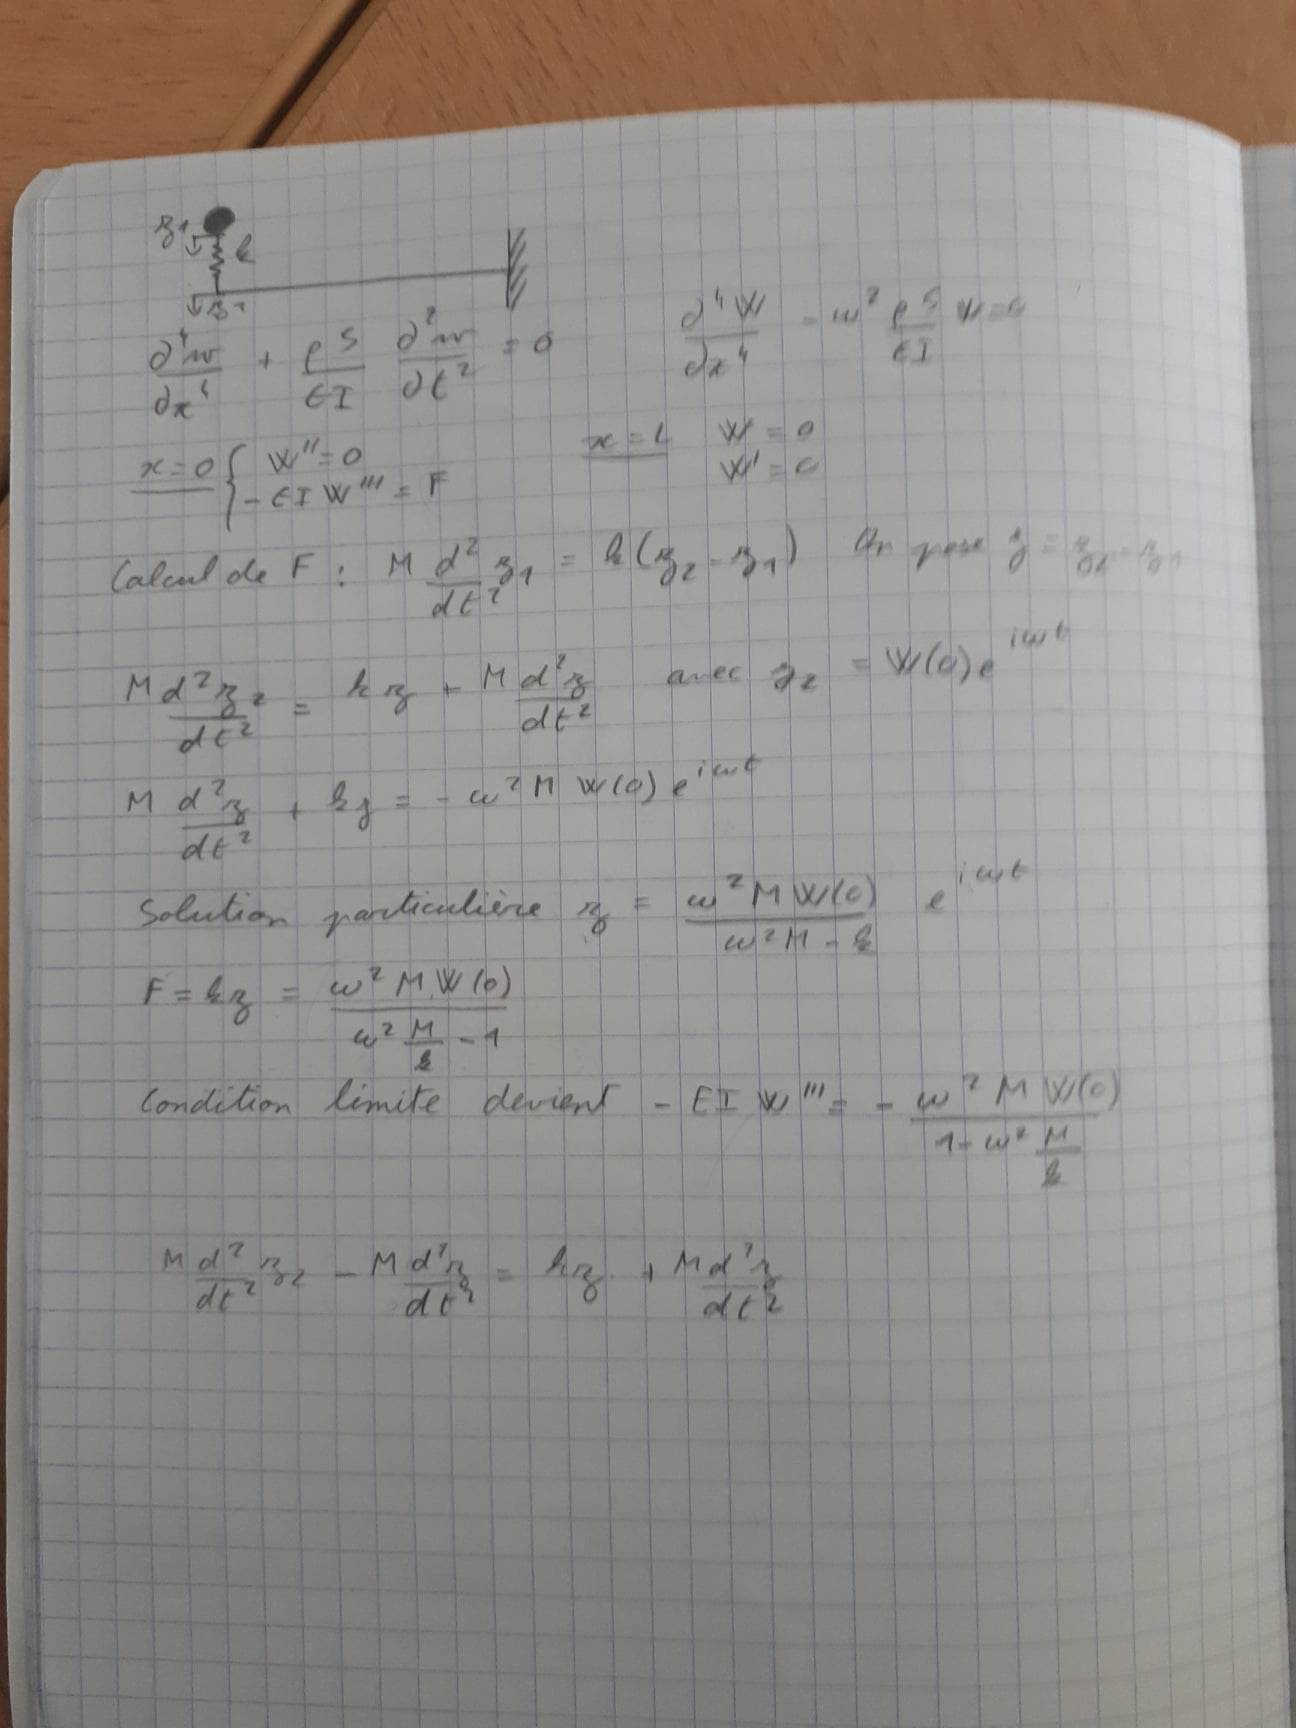 z₁ k
z₂
∂⁴w/∂x⁴ + ρS/EI ∂²w/∂t² = 0 ∂⁴W/∂x⁴ - ω² ρS/EI W = 0
x=0 { W'' = 0 x = L W = 0
- EI W''' = F W' = 0
Calcul de F : M d²/dt² z₁ = k(z₂ - z₁) On pose z = z₂ - z₁
M d²z₂/dt² = kz + M d²z/dt² avec z₂ = W(0)e^{iωt}
M d²z/dt² + kz = - ω² M W(0) e^{iωt}
Solution particulière z = ω² M W(0)/(ω² M - k) e^{iωt}
F = kz = ω² M W(0)/(ω² M/k - 1)
Condition limite devient - EI W''' = - ω² M W(0)/(1 - ω² M/k)
M d²/dt² z₂ - M d²z/dt² = kz + M d²z/dt²